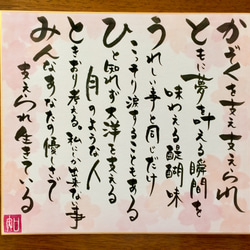 かぞくを支え支えられ
ともに夢を叶える瞬間を
味わえる醍醐味
うれしい事と同じだけ
こっそり涙することもある
ひと知れず大洋を支える
月のような人
ときどき考える。私にか出来ない事
みんなあなたの優しさで
支えられ生きている